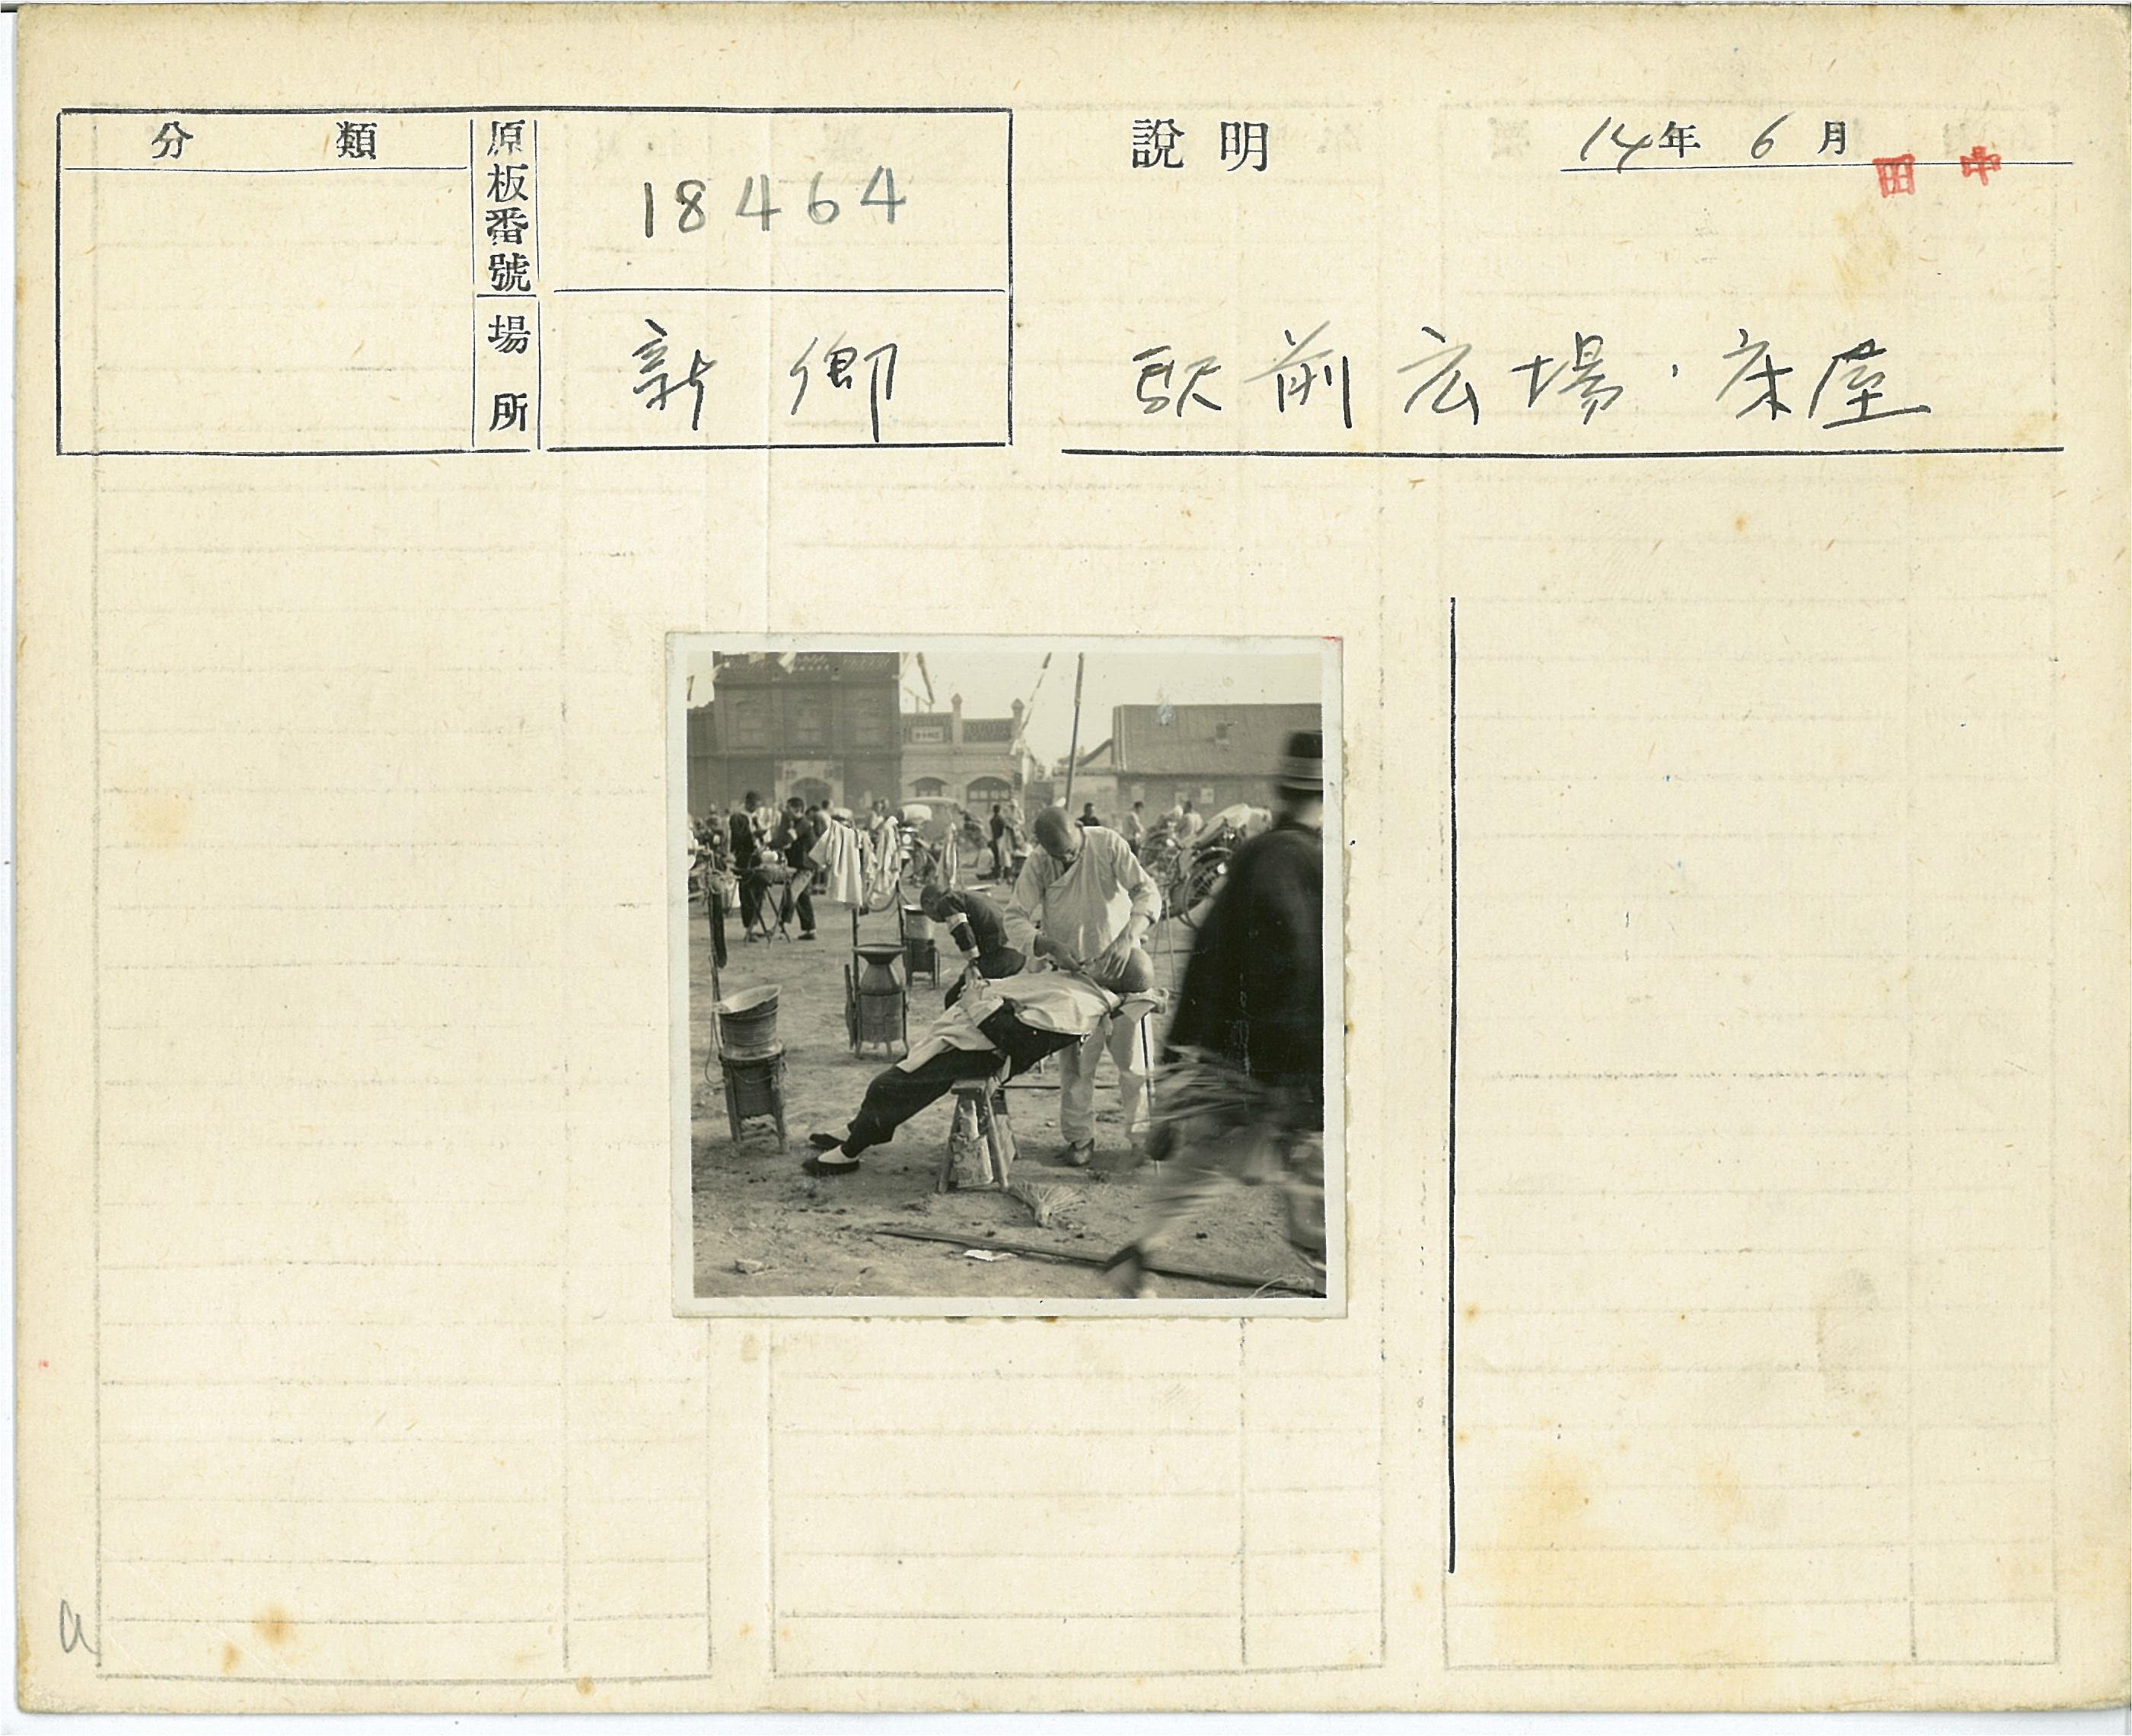 分類
原板番號
18464
場所
新郷
說明
14年6月
田中
駅前広場・床屋
a